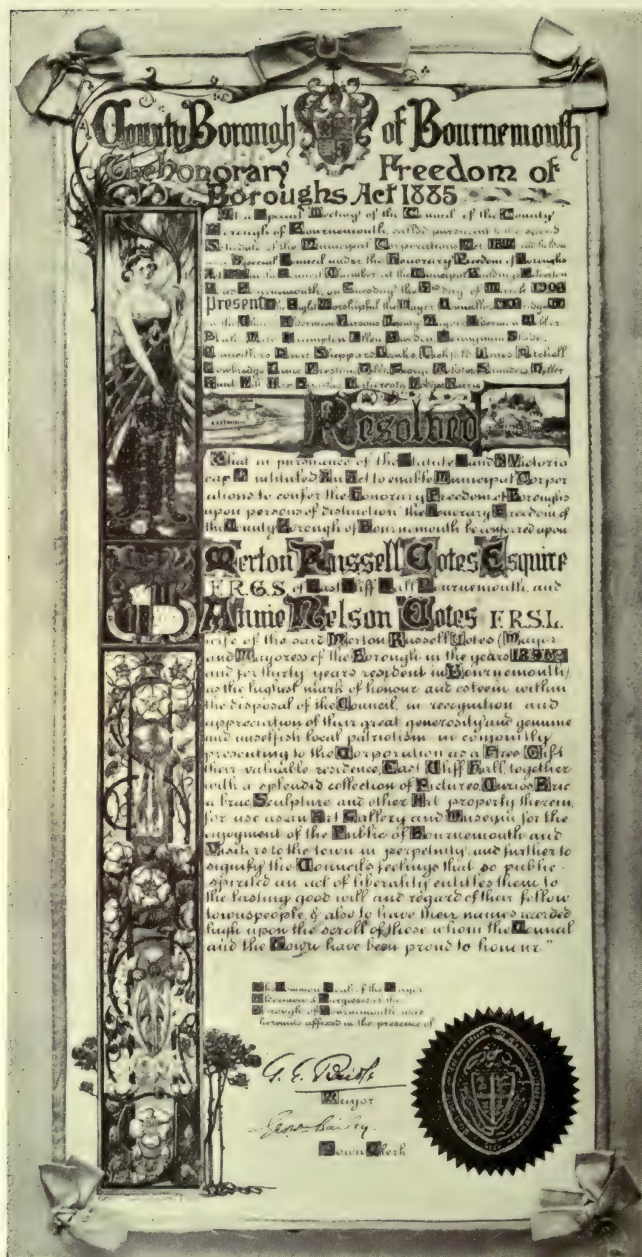 County Borough of Bournemouth
The Honorary Freedom of
Boroughs Act 1885
At a Special Meeting of the Council of the County
Borough of Bournemouth, called pursuant to the second
Schedule of the Municipal Corporations Act 1882 and
Special Council under the Honorary Freedom of Boroughs
Act Council Chamber at the Municipal Buildings
Bournemouth, on day of March 1908
Present The Right Worshipful the Mayor
in the Chair Alderman Parsons Deputy Mayor Aldermen
Councillors
Resolved
That in pursuance of the Statute Victoria
cap intituled An Act to enable Municipal Corpor
ations to confer the Honorary Freedom of Boroughs
upon persons of distinction the Honorary Freedom of
the County Borough of Bournemouth be conferred upon
Merton Russell Cotes Esquire
F.R.G.S. of East Cliff Hall Bournemouth, and
Annie Nelson Cotes F.R.S.L.
wife of the said Merton Russell Cotes (Mayor
and Mayoress of the Borough in the years
and for thirty years resident in Bournemouth)
as the highest mark of honour and esteem within
the disposal of the Council, in recognition and
appreciation of their great generosity and genuine
and unselfish local patriotism in conjointly
presenting to the Corporation as a Free Gift
their valuable residence, East Cliff Hall, together
with a splendid collection of Pictures, Curios Bric
a brac Sculpture and other Art property therein,
for use as an Art Gallery and Museum for the
enjoyment of the Public of Bournemouth and
Visitors to the town in perpetuity and further to
signify the Council's feelings that so public
spirited an act of liberality entitles them to
the lasting good will and regard of their fellow
townspeople, & also to have their names recorded
high upon the scroll of those whom the Council
and the Town have been proud to honour."
The Common Seal of the Mayor
Aldermen & Burgesses of the
Borough of Bournemouth was
hereunto affixed in the presence of
Mayor
Geo Wm Bailey
Town Clerk